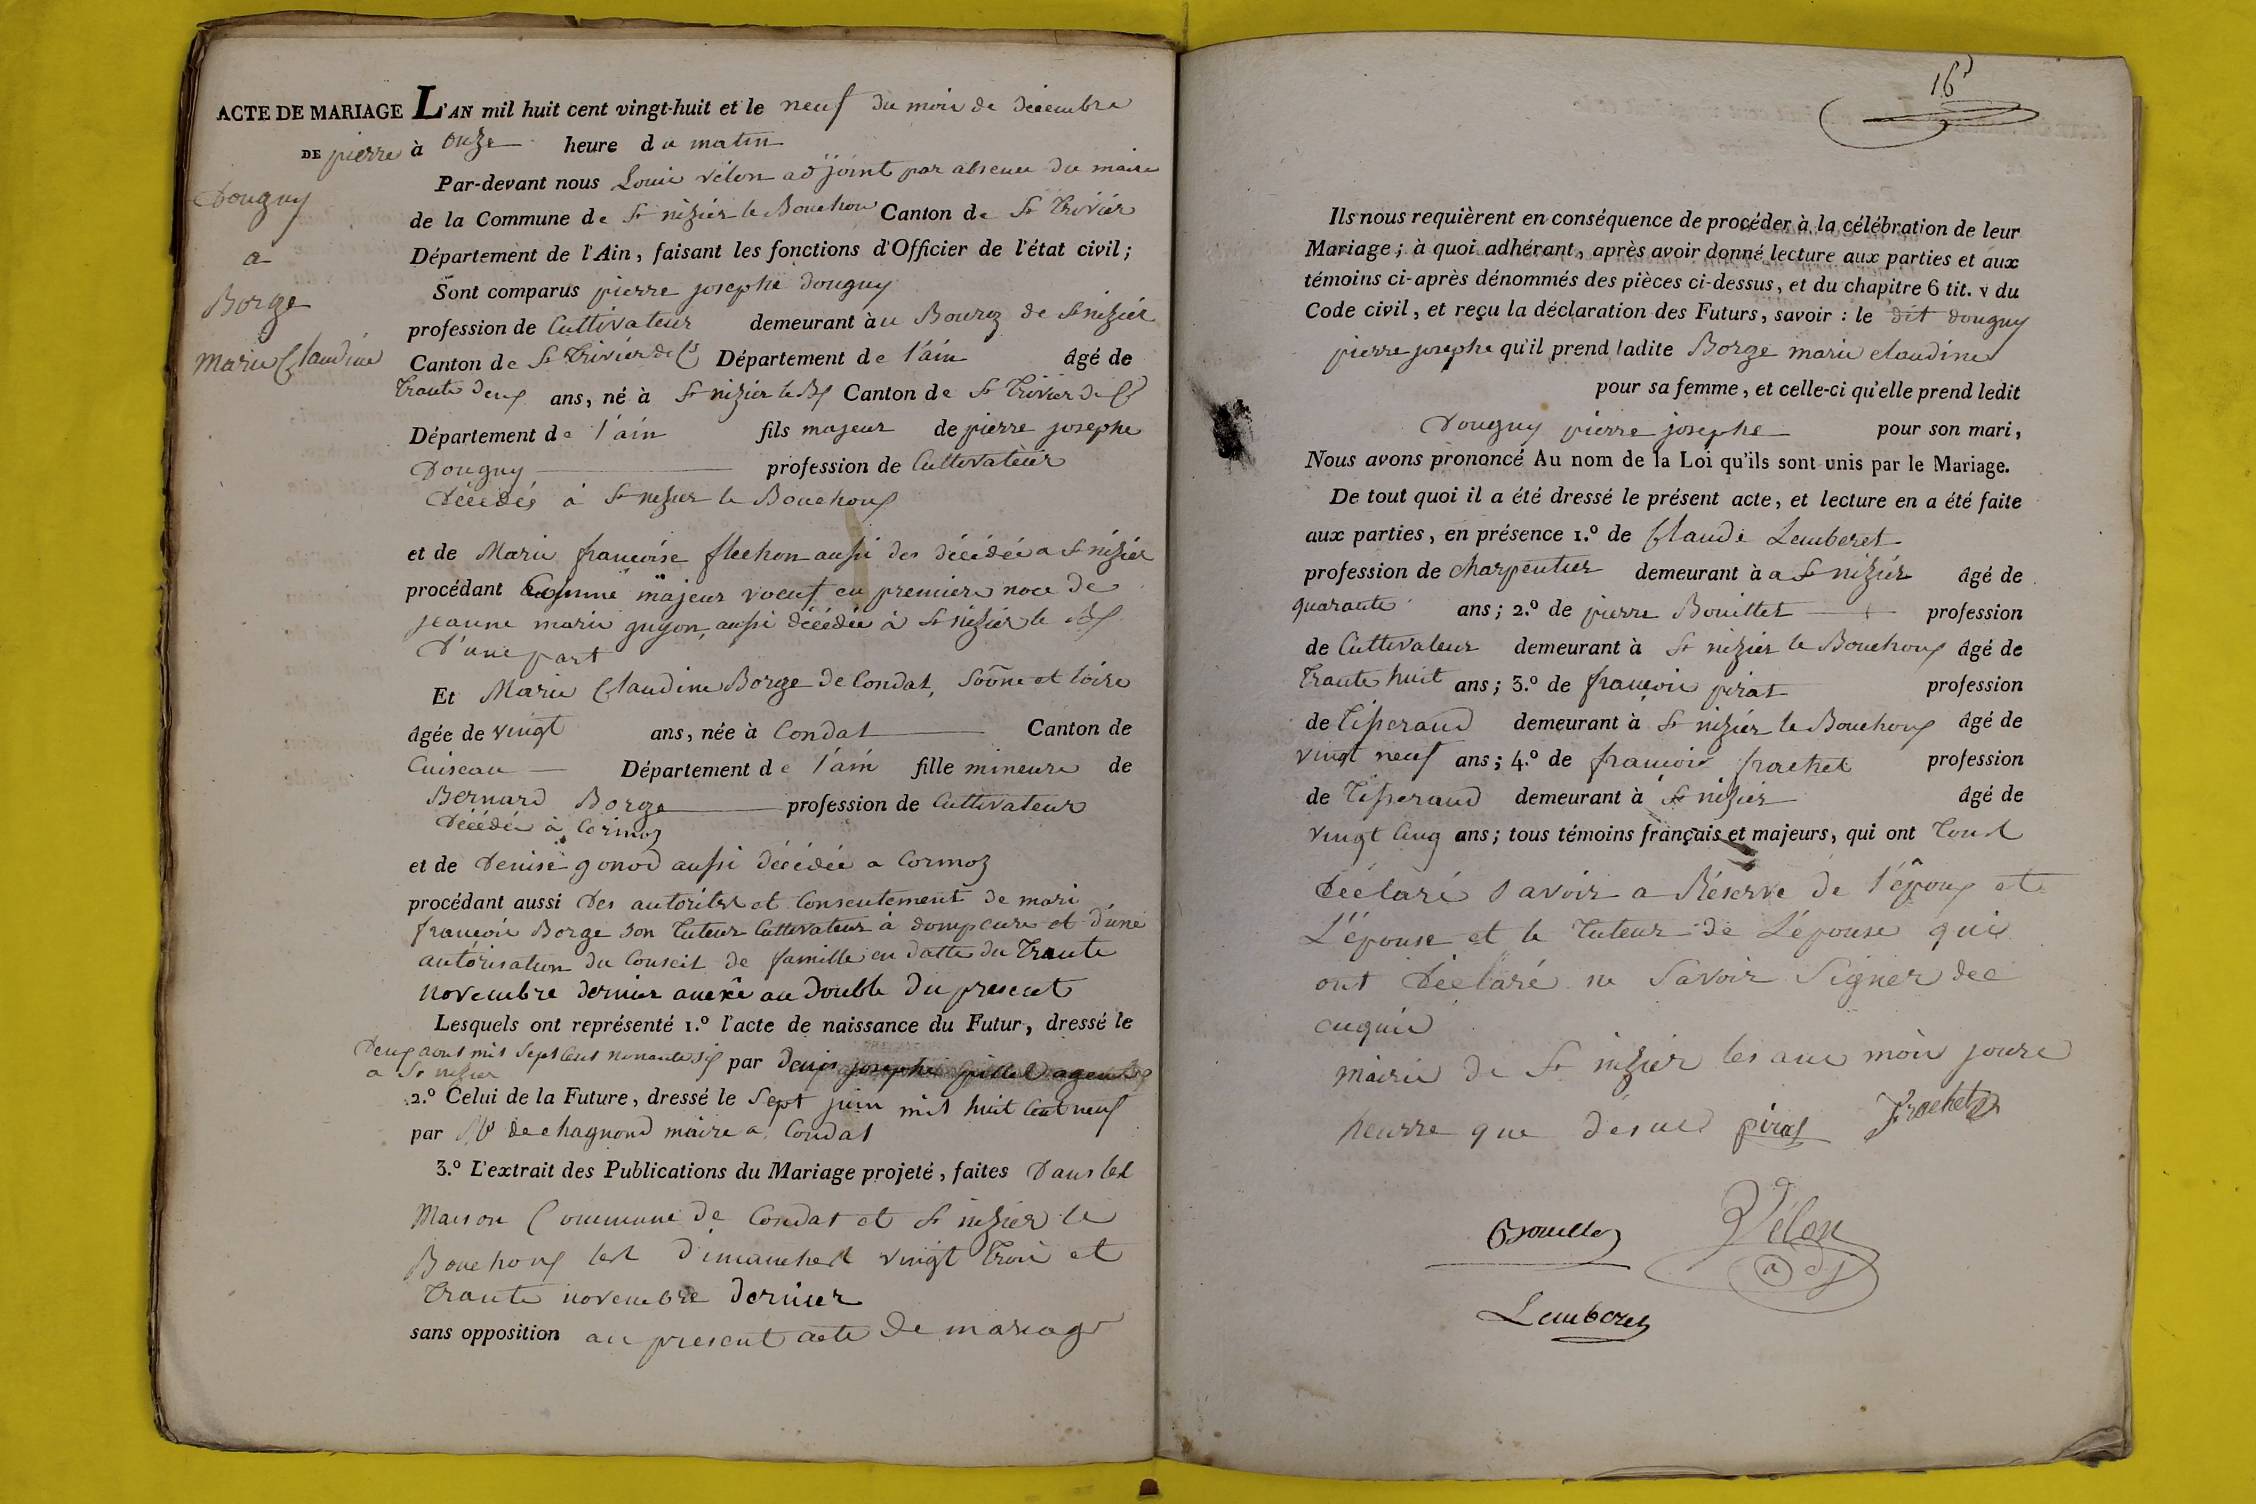 ACTE DE MARIAGE L'AN mil huit cent vingt-huit et le neuf du mois de decembre
DE pierre à onze heure du matin
Dougny
a
Borge
marie Claudine
Par-devant nous Louis vélon adjoint par absence du maire
de la Commune de St nizier le Bouchou Canton de St Trivier
Département de l'Ain, faisant les fonctions d'Officier de l'état civil;
Sont comparus pierre josephe dougny
profession de Cultivateur demeurant à au Bourg de St nizier
Canton de St Trivier de Cs Département de l'ain âgé de
Trante deux ans, né à St nizier le Bx Canton de St Trivier de Cs
Département de l'ain fils majeur de pierre josephe
Dougny profession de Cultivateur
Décédés à St nizier le Bouchoux
et de Marie françoise flechon aussi des décédée a St nizier
procédant Comme majeur voeuf en premiere noce de
jeanne marie guyon, aussi décédée à St nizier le Bx
D'une part
Et Marie Claudine Borge de Condal, Soône et loire
âgée de vingt ans, née à Condal Canton de
Cuiseau Département de l'ain fille mineure de
Bernard Borge profession de Cultivateur
Décédé à Cormoz
et de Denise gonod aussi décédée a Cormoz
procédant aussi Des autorités et Consentement de mari
françois Borge son Tuteur Cultivateur à dompsure et d'une
autorisation du Conseil de famille en datte du Trante
novembre dernier anexé au double du present
Lesquels ont représenté 1.º l'acte de naissance du Futur, dressé le
Deux aout mil sept Cent nonante six par denis josephe agent
a St nizier
2.º Celui de la Future, dressé le Sept juin mil huit Cent neuf
par Mr dechagnond maire a Condal
3.º L'extrait des Publications du Mariage projeté, faites Dans les
Maison Commune de Condat et St nizier le
Bouchoux les Dimanches vingt Trois et
Trante novembre dernier
sans opposition au present acte de mariage
16
Ils nous requièrent en conséquence de procéder à la célébration de leur
Mariage; à quoi adhérant, après avoir donné lecture aux parties et aux
témoins ci-après dénommés des pièces ci-dessus, et du chapitre 6 tit. v du
Code civil, et reçu la déclaration des Futurs, savoir : le dit dougny
pierre josephe qu'il prend ladite Borge marie claudine
pour sa femme, et celle-ci qu'elle prend ledit
Dougny pierre josephe pour son mari,
Nous avons prononcé Au nom de la Loi qu'ils sont unis par le Mariage.
De tout quoi il a été dressé le présent acte, et lecture en a été faite
aux parties, en présence 1.º de Claude Lemberet
profession de charpentier demeurant à a St nizier âgé de
quarante ans; 2.º de pierre Bouillet profession
de Cultivateur demeurant à St nizier le Bouchoux âgé de
Trante huit ans; 3.º de françois pirat profession
de Tisserand demeurant à St nizier le Bouchoux âgé de
vingt neuf ans; 4.º de françois frachet profession
de Tisserand demeurant à St nizier âgé de
vingt Cinq ans; tous témoins français et majeurs, qui ont Tous
Déclaré savoir a Réserve de l'époux et
L'épouse et le Tuteur de L'épouse qui
ont Déclaré ne Savoir Signer dee
enquis
mairie de St nizier les ans mois jours
heurre que désus pirat frachet
Bouillet Vélon
adj
Lemberet